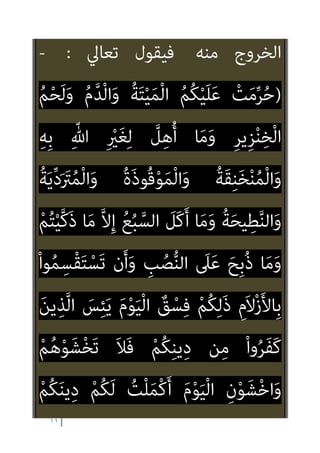 الخروج منه فيقول تعالي : -
(حُرِّمَتْ عَلَيْكُمُ الْمَيْتَةُ وَالْدَّمُ وَلَحْمُ
الْخِنْزِيرِ وَمَا أُهِلَّ لِغَيْرِ اللّهِ بِهِ
وَالْمُنْخَنِقَةُ وَالْمَوْقُوذَةُ وَالْمُتَرَدِّيَةُ
وَالنَّطِيحَةُ وَمَا أَكَلَ السَّبُعُ إِلاَّ مَا ذَكَّيْتُمْ
وَمَا ذُبِحَ عَلَى النُّصُبِ وَأَن تَسْتَقْسِمُواْ
بِالأَزْلاَمِ ذَلِكُمْ فِسْقٌ الْيَوْمَ يَئِسَ الَّذِينَ
كَفَرُواْ مِن دِينِكُمْ فَلاَ تَخْشَوْهُمْ
وَاخْشَوْنِ الْيَوْمَ أَكْمَلْتُ لَكُمْ دِينَكُمْ